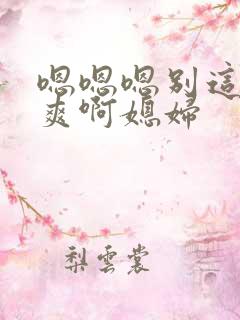 嗯嗯嗯别這
爽啊媳婦
梨雲裳